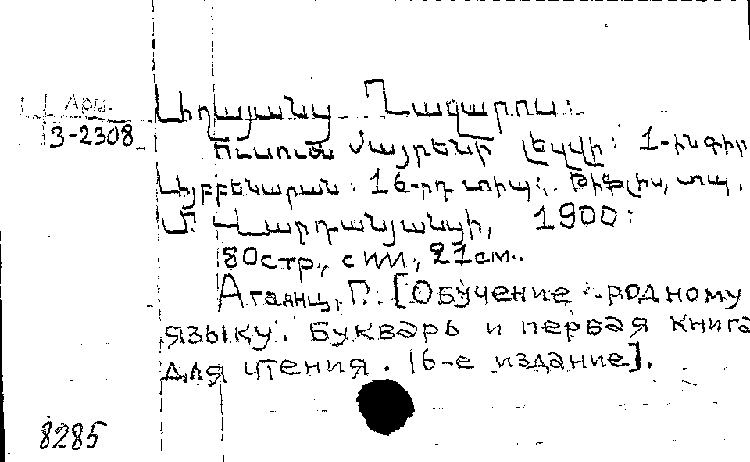 Арм.
3-2308
Աղայանց Ղազարոս:
Ուսումն մայրենի լեզվի: 1-ին գիրք
Այբբենարան: 16-րդ տիպ: Թիֆլիս, տպ.
Մ. Վարդանյանցի, 1900:
80 стр., с илл., 21 см.
Агаянц, Г. [Обучение родному
языку. Букварь и первая книга
для чтения. 16-е издание].
8285